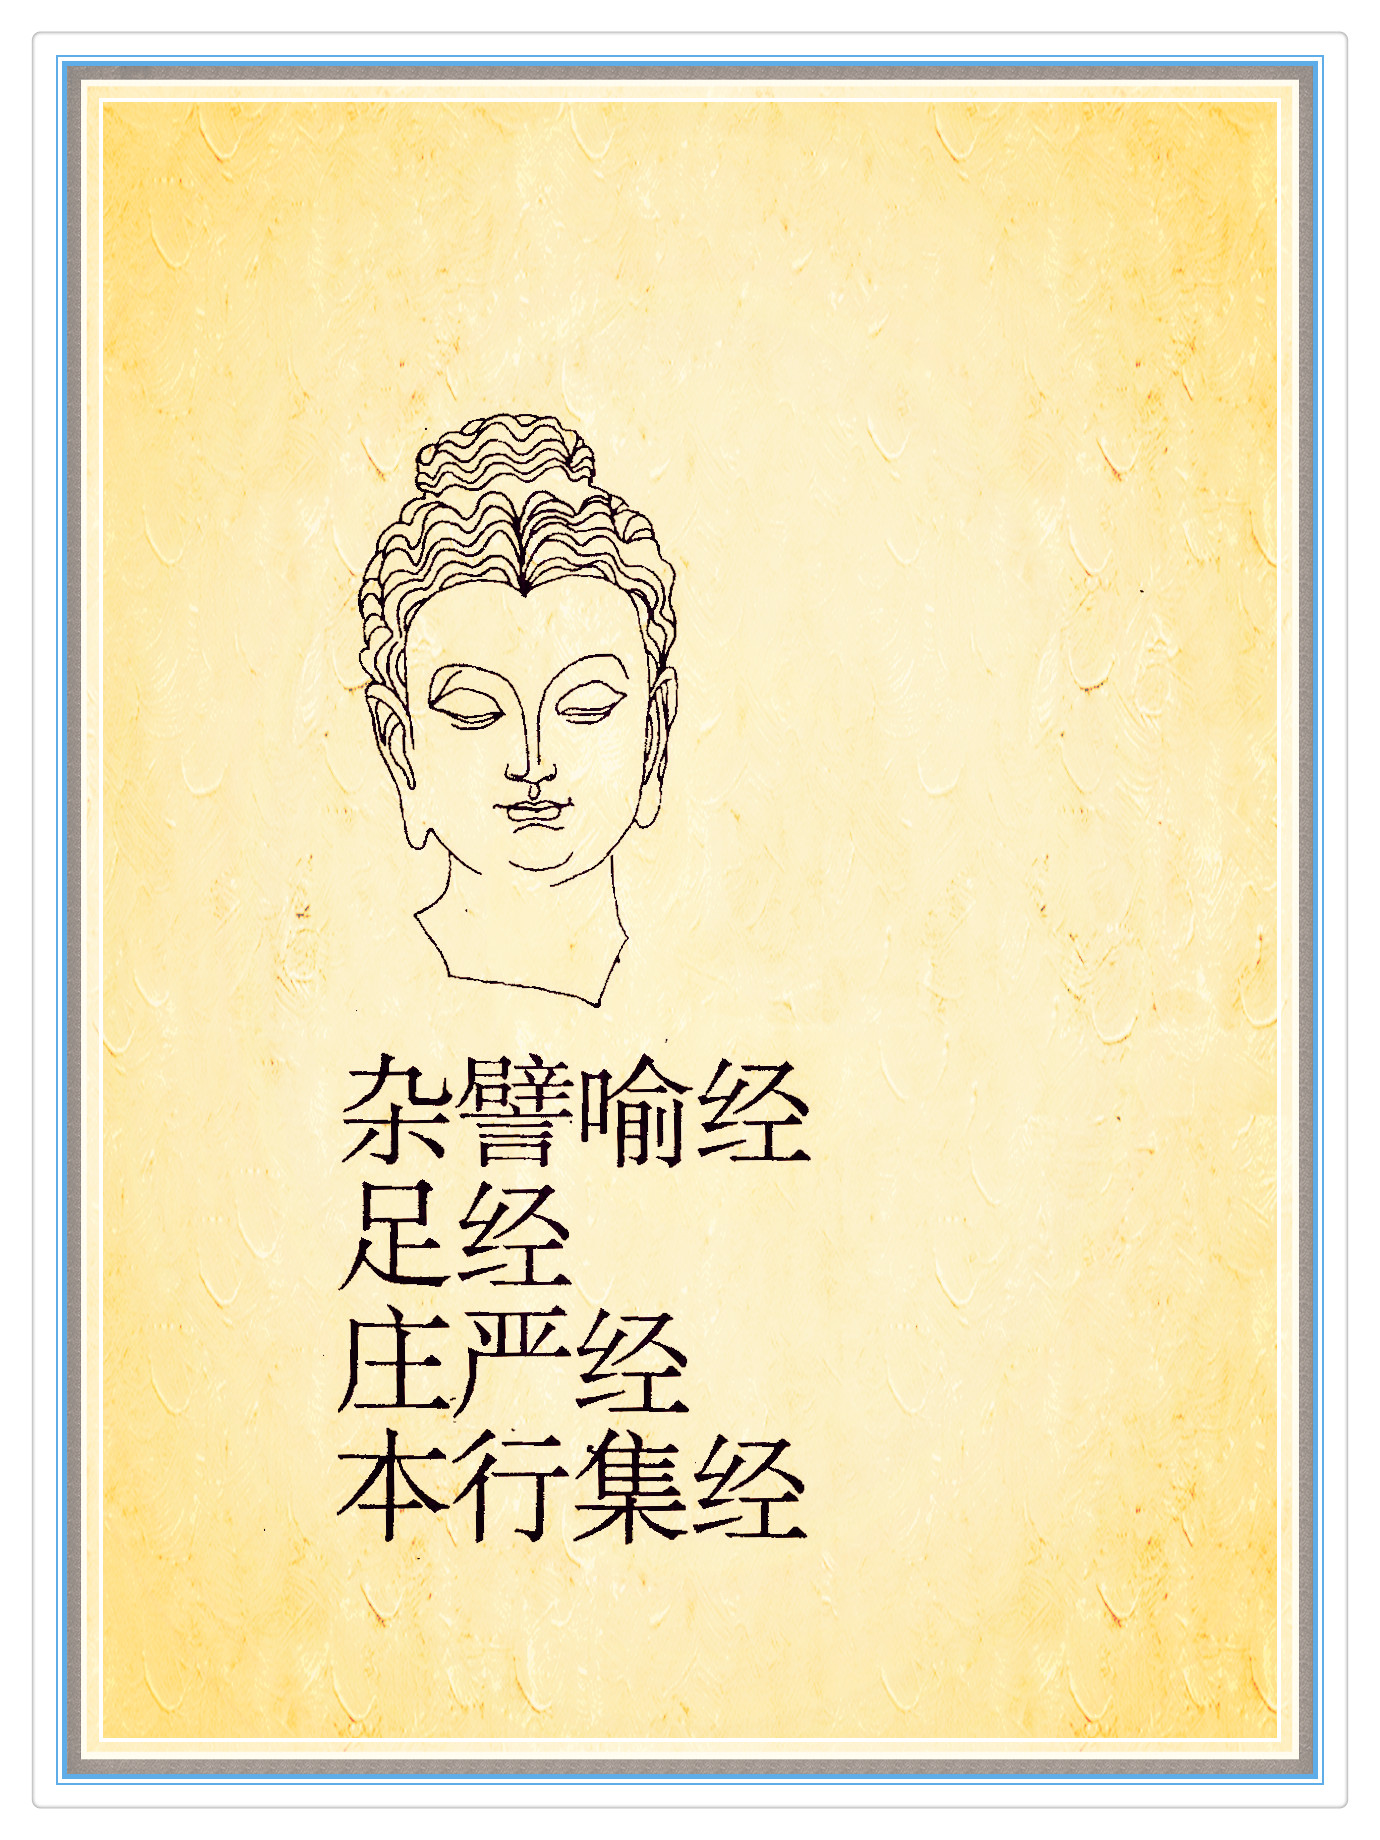 杂譬喻经
足经
庄严经
本行集经